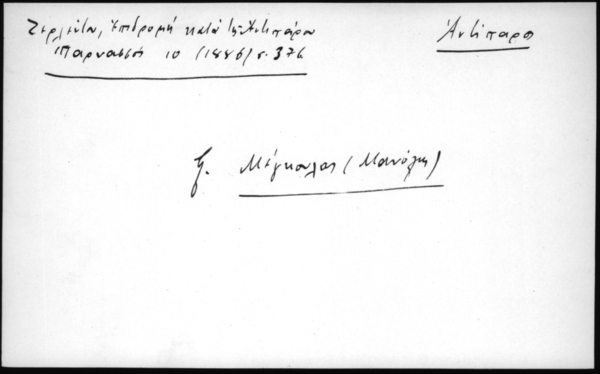 Ζερλέντου, Ἐπιδρομή κατά τῆς Ἀντιπάρου
Παρνασσός 10 (1886) σ. 376
Ἀντίπαρος
Μέγκουλας (Μανόλης)